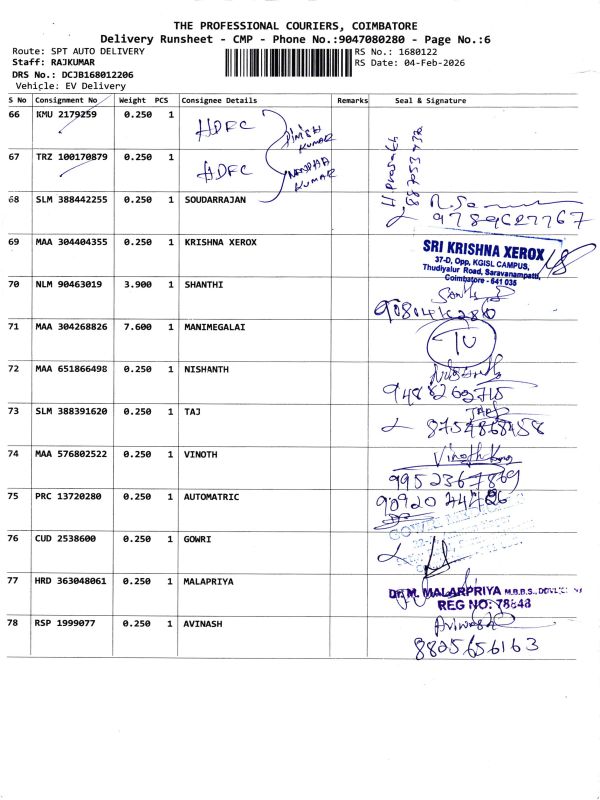 THE PROFESSIONAL COURIERS, COIMBATORE
Delivery Runsheet - CMP - Phone No.:9047080280 - Page No.:6
Route: SPT AUTO DELIVERY RS No.: 1680122
Staff: RAJKUMAR RS Date: 04-Feb-2026
DRS No.: DCJB168012206
Vehicle: EV Delivery
S No Consignment No Weight PCS Consignee Details Remarks Seal & Signature
66 KMU 2179259 0.250 1 HDFC DINISH KUMAR
67 TRZ 100170879 0.250 1 HDFC NANDHA KUMAR
68 SLM 388442255 0.250 1 SOUDARRAJAN 9789627767
69 MAA 304404355 0.250 1 KRISHNA XEROX SRI KRISHNA XEROX
37-D, Opp, KGISL CAMPUS,
Thudiyalur Road, Saravanampatti,
Coimbatore - 641 035
70 NLM 90463019 3.900 1 SHANTHI
71 MAA 304268826 7.600 1 MANIMEGALAI
72 MAA 651866498 0.250 1 NISHANTH
73 SLM 388391620 0.250 1 TAJ
74 MAA 576802522 0.250 1 VINOTH
9952367869
75 PRC 13720280 0.250 1 AUTOMATRIC
76 CUD 2538600 0.250 1 GOWRI
77 HRD 363048061 0.250 1 MALAPRIYA Dr. M. MALARPRIYA M.B.B.S.,
REG NO: 78848
78 RSP 1999077 0.250 1 AVINASH Avinash
8825656163